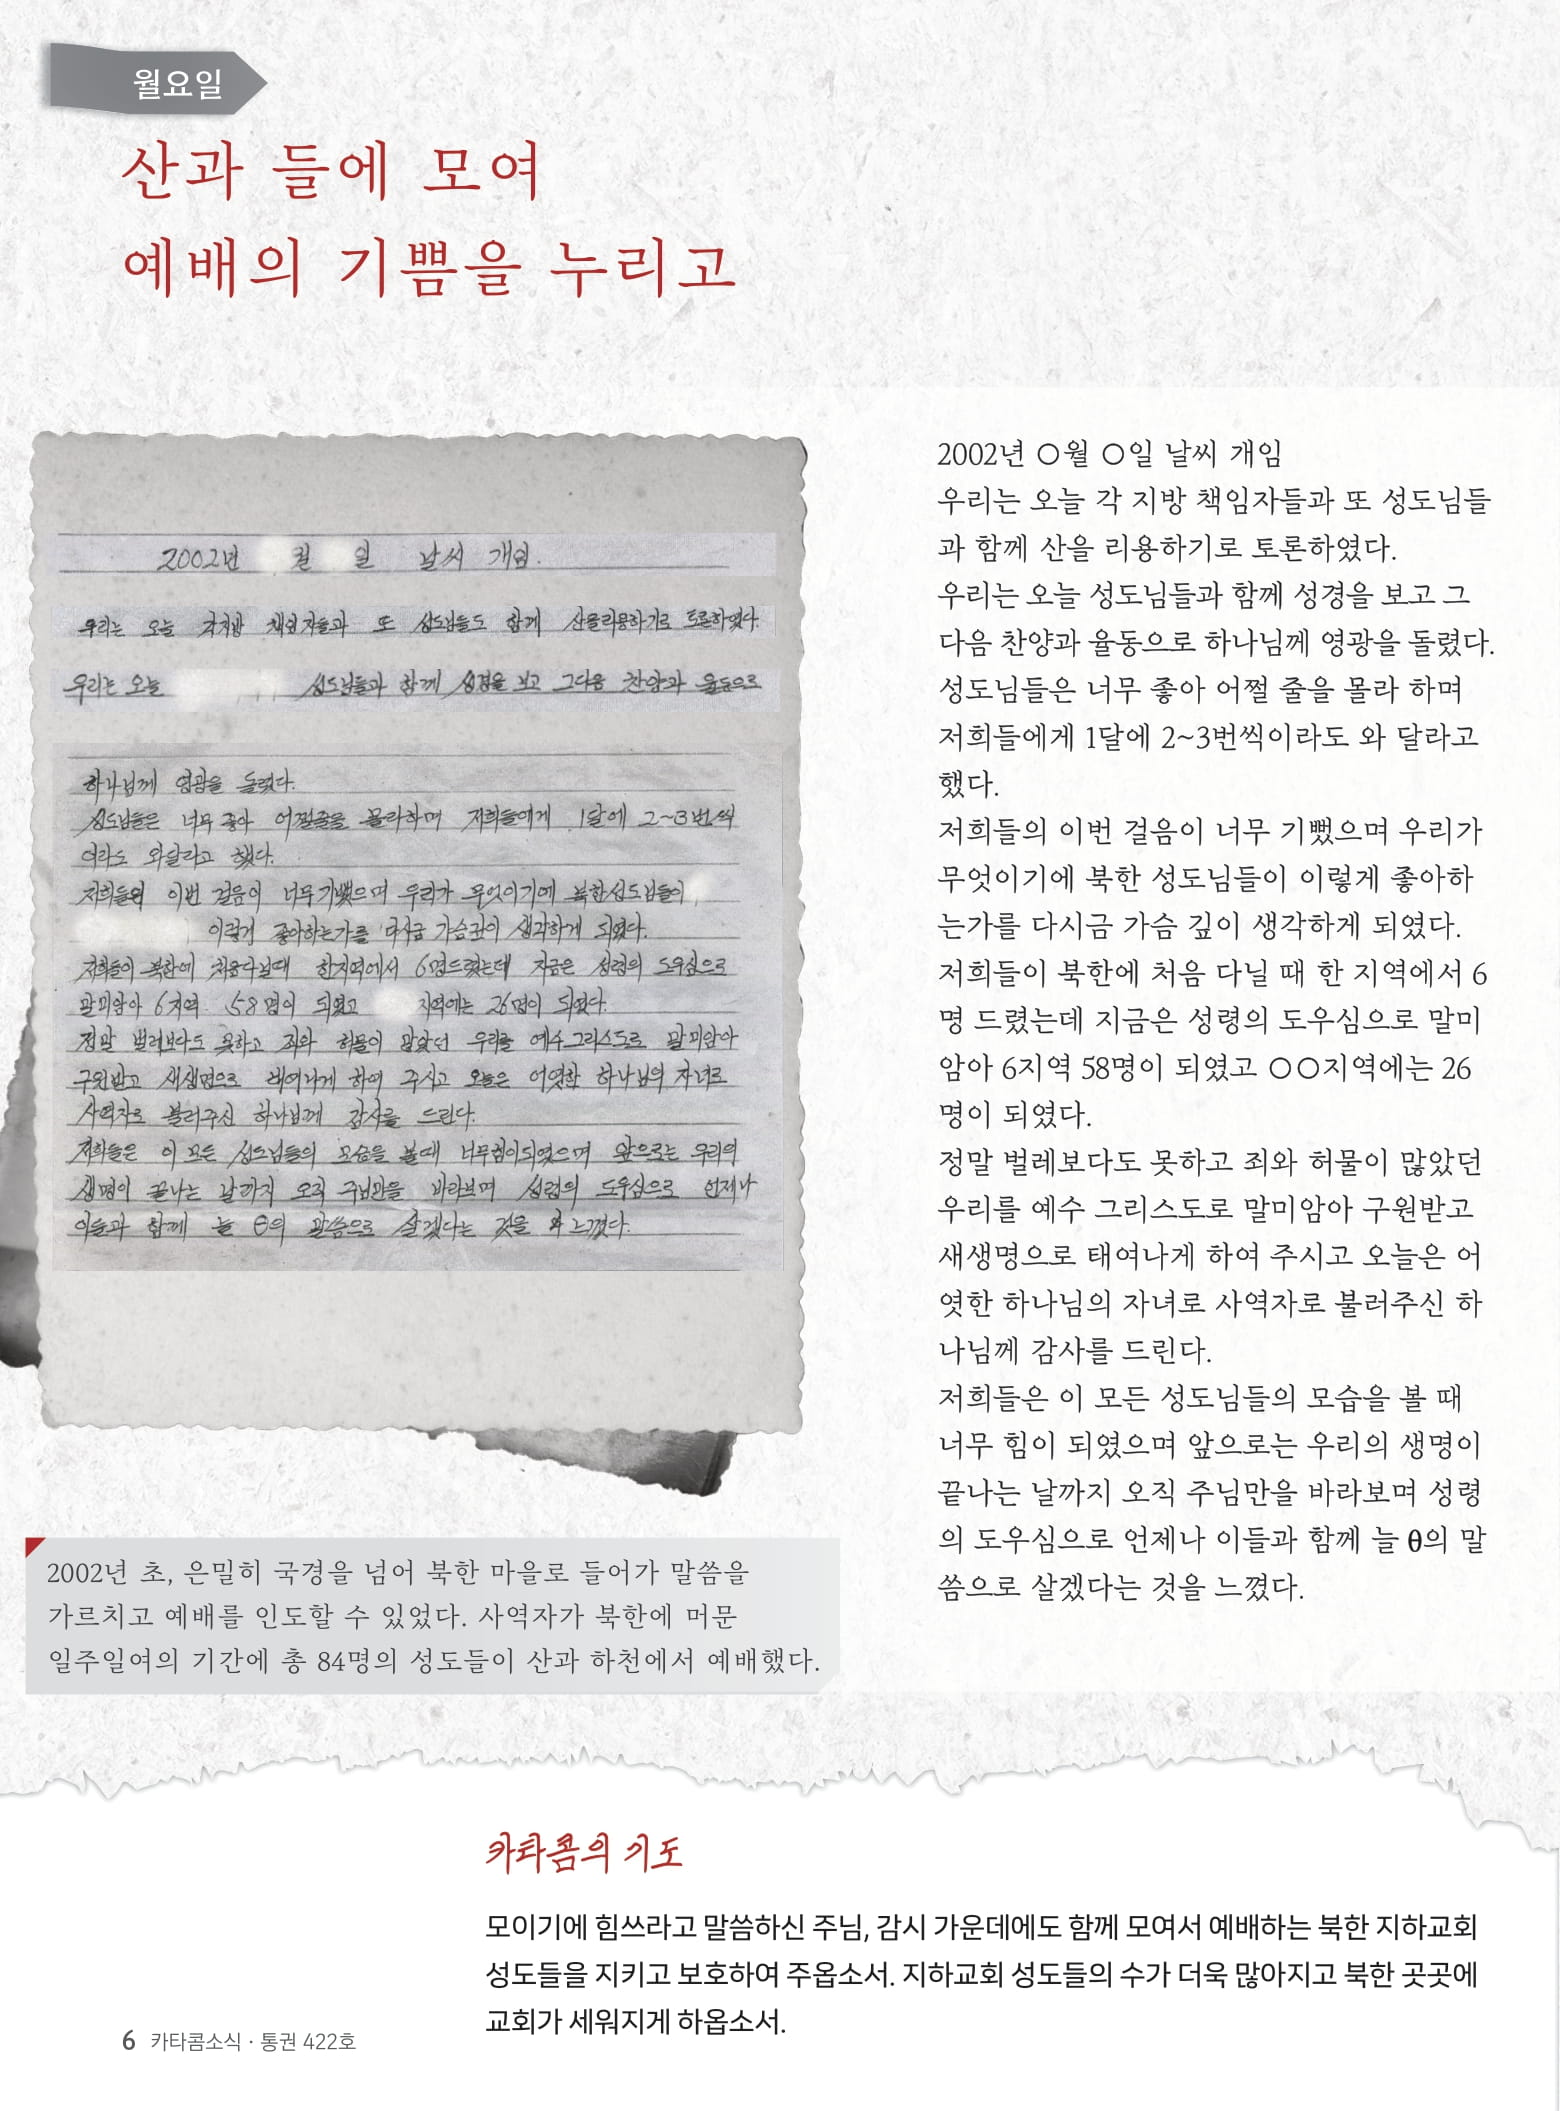 월요일
산과 들에 모여
예배의 기쁨을 누리고
2002년 월 일 날씨 개임.
우리는 오늘 각지방 책임자들과 또 성도님들도 함께 산을리용하기로 토론하였다.
우리는 오늘 성도님들과 함께 성경을 보고 그다음 찬양과 율동으로
하나님께 영광을 돌렸다.
성도님들은 너무 좋아 어쩔줄을 몰라하며 저희들에게 1달에 2~3번씩
이라도 와달라고 했다.
저희들의 이번 걸음이 너무기뻤으며 우리가 무엇이기에 북한성도님들이
이렇게 좋아하는가를 다시금 가슴깊이 생각하게 되였다.
저희들이 북한에 처음다닐때 한지역에서 6명드렸는데 지금은 성령의 도우심으로
말미암아 6지역 58명이 되였고 지역에는 26명이 되였다.
정말 벌레보다도 못하고 죄와 허물이 많았던 우리를 예수그리스도로 말미암아
구원받고 새생명으로 태여나게 하여 주시고 오늘은 어엿한 하나님의 자녀로
사역자로 불러주신 하나님께 감사를 드린다.
저희들은 이 모든 성도님들의 모습을 볼때 너무힘이되였으며 앞으로는 우리의
생명이 끝나는 날까지 오직 주님만을 바라보며 성령의 도우심으로 언제나
이들과 함께 늘 θ의 말씀으로 살겠다는 것을 느꼈다.
2002년 초, 은밀히 국경을 넘어 북한 마을로 들어가 말씀을
가르치고 예배를 인도할 수 있었다. 사역자가 북한에 머문
일주일여의 기간에 총 84명의 성도들이 산과 하천에서 예배했다.
2002년 ○월 ○일 날씨 개임
우리는 오늘 각 지방 책임자들과 또 성도님들
과 함께 산을 리용하기로 토론하였다.
우리는 오늘 성도님들과 함께 성경을 보고 그
다음 찬양과 율동으로 하나님께 영광을 돌렸다.
성도님들은 너무 좋아 어쩔 줄을 몰라 하며
저희들에게 1달에 2~3번씩이라도 와 달라고
했다.
저희들의 이번 걸음이 너무 기뻤으며 우리가
무엇이기에 북한 성도님들이 이렇게 좋아하
는가를 다시금 가슴 깊이 생각하게 되였다.
저희들이 북한에 처음 다닐 때 한 지역에서 6
명 드렸는데 지금은 성령의 도우심으로 말미
암아 6지역 58명이 되였고 ○○지역에는 26
명이 되였다.
정말 벌레보다도 못하고 죄와 허물이 많았던
우리를 예수 그리스도로 말미암아 구원받고
새생명으로 태여나게 하여 주시고 오늘은 어
엿한 하나님의 자녀로 사역자로 불러주신 하
나님께 감사를 드린다.
저희들은 이 모든 성도님들의 모습을 볼 때
너무 힘이 되였으며 앞으로는 우리의 생명이
끝나는 날까지 오직 주님만을 바라보며 성령
의 도우심으로 언제나 이들과 함께 늘 θ의 말
씀으로 살겠다는 것을 느꼈다.
카타콤의 기도
모이기에 힘쓰라고 말씀하신 주님, 감시 가운데에도 함께 모여서 예배하는 북한 지하교회
성도들을 지키고 보호하여 주옵소서. 지하교회 성도들의 수가 더욱 많아지고 북한 곳곳에
교회가 세워지게 하옵소서.
6 카타콤소식 · 통권 422호